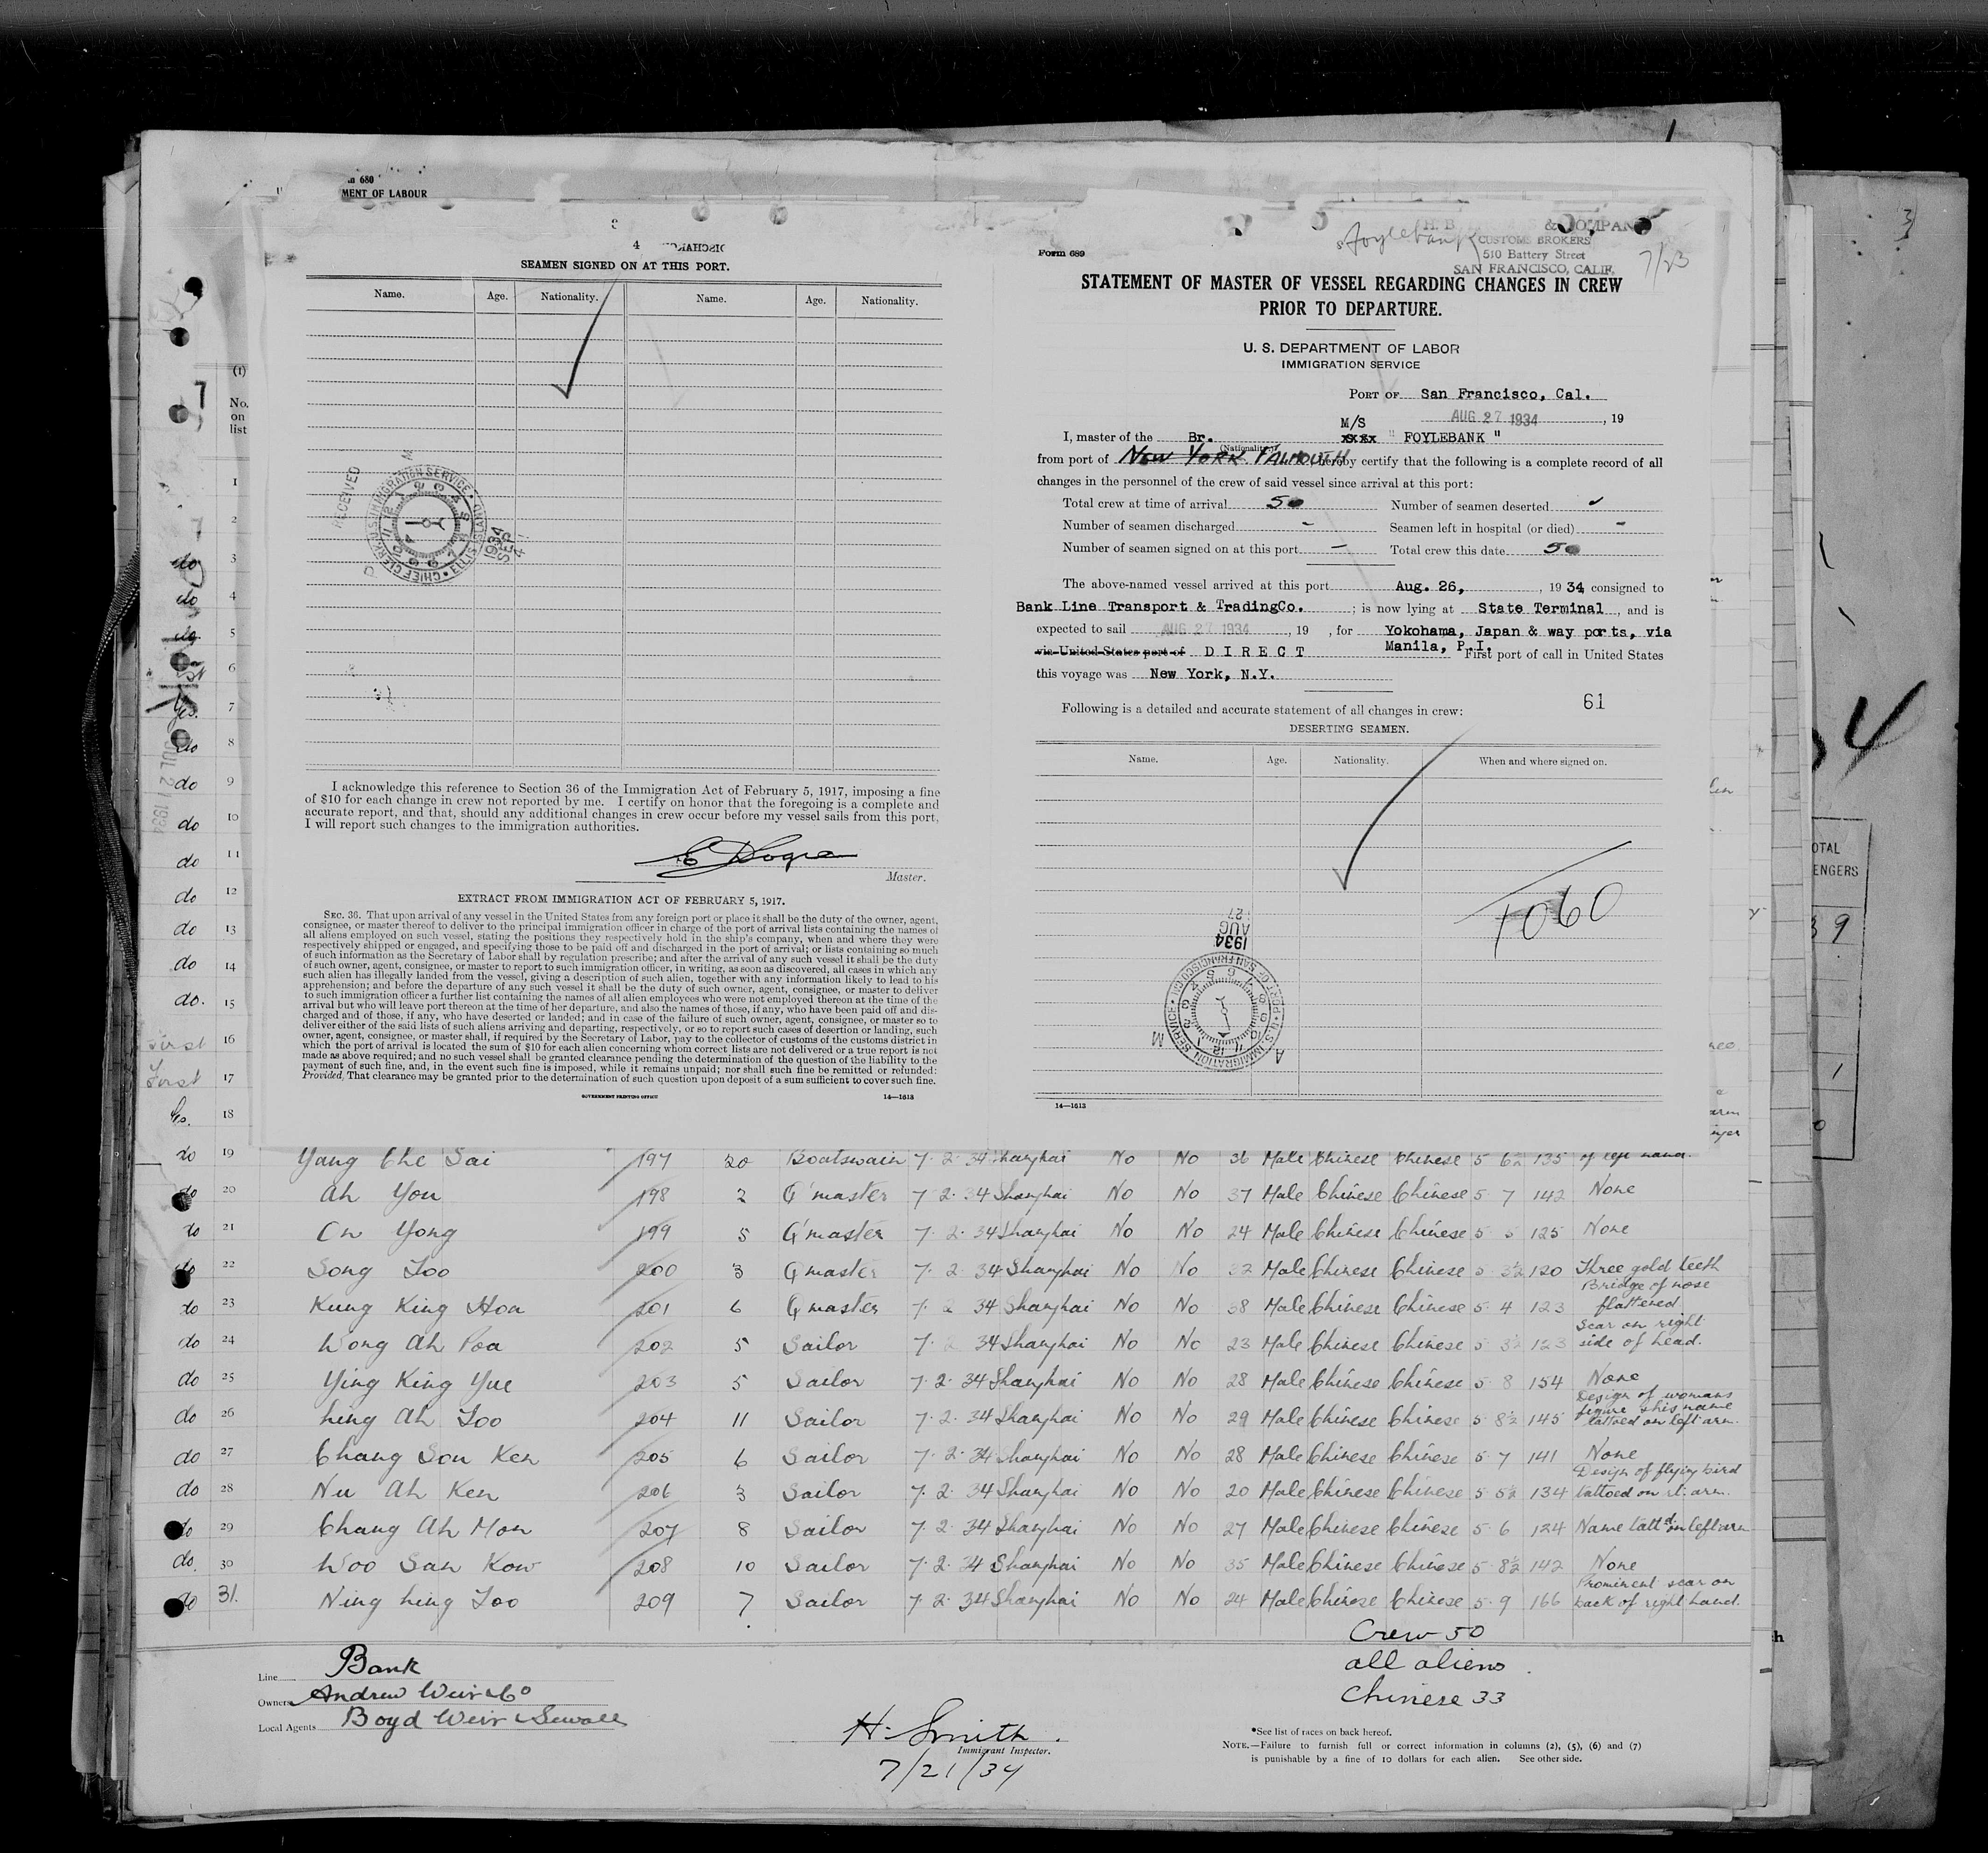 680
MENT OF LABOUR
4
SEAMEN SIGNED ON AT THIS PORT.
Name. Age. Nationality. Name. Age. Nationality.
RECEIVED
CHIEF CLERK U.S. IMMIGRATION SERVICE ELLIS ISLAND
1934
SEP
4
I acknowledge this reference to Section 36 of the Immigration Act of February 5, 1917, imposing a fine
of $10 for each change in crew not reported by me. I certify on honor that the foregoing is a complete and
accurate report, and that, should any additional changes in crew occur before my vessel sails from this port,
I will report such changes to the immigration authorities.
Master.
EXTRACT FROM IMMIGRATION ACT OF FEBRUARY 5, 1917.
SEC. 36. That upon arrival of any vessel in the United States from any foreign port or place it shall be the duty of the owner, agent,
consignee, or master thereof to deliver to the principal immigration officer in charge of the port of arrival lists containing the names of
all aliens employed on such vessel, stating the positions they respectively hold in the ship's company, when and where they were
respectively shipped or engaged, and specifying those to be paid off and discharged in the port of arrival; or lists containing so much
of such information as the Secretary of Labor shall by regulation prescribe; and after the arrival of any such vessel it shall be the duty
of such owner, agent, consignee, or master to report to such immigration officer, in writing, as soon as discovered, all cases in which any
such alien has illegally landed from the vessel, giving a description of such alien, together with any information likely to lead to his
apprehension; and before the departure of any such vessel it shall be the duty of such owner, agent, consignee, or master to deliver
to such immigration officer a further list containing the names of all alien employees who were not employed thereon at the time of the
arrival but who will leave port thereon at the time of her departure, and also the names of those, if any, who have been paid off and dis-
charged and of those, if any, who have deserted or landed; and in case of the failure of such owner, agent, consignee, or master so to
deliver either of the said lists of such aliens arriving and departing, respectively, or so to report such cases of desertion or landing, such
owner, agent, consignee, or master shall, if required by the Secretary of Labor, pay to the collector of customs of the customs district in
which the port of arrival is located the sum of $10 for each alien concerning whom correct lists are not delivered or a true report is not
made as above required; and no such vessel shall be granted clearance pending the determination of the question of the liability to the
payment of such fine, and, in the event such fine is imposed, while it remains unpaid; nor shall such fine be remitted or refunded:
Provided, That clearance may be granted prior to the determination of such question upon deposit of a sum sufficient to cover such fine.
GOVERNMENT PRINTING OFFICE 14—1613
Form 689
Foylebank
7/23
& COMPANY
CUSTOMS BROKERS
510 Battery Street
SAN FRANCISCO, CALIF.
STATEMENT OF MASTER OF VESSEL REGARDING CHANGES IN CREW
PRIOR TO DEPARTURE.
U. S. DEPARTMENT OF LABOR
IMMIGRATION SERVICE
PORT OF San Francisco, Cal.
AUG 27 1934, 19
M/S
I, master of the Br. "FOYLEBANK"
(Nationality)
from port of NEW YORK FALMOUTH hereby certify that the following is a complete record of all
changes in the personnel of the crew of said vessel since arrival at this port:
Total crew at time of arrival 50 Number of seamen deserted
Number of seamen discharged - Seamen left in hospital (or died) -
Number of seamen signed on at this port - Total crew this date 50
The above-named vessel arrived at this port Aug. 26, , 1934 consigned to
Bank Line Transport & TradingCo. ; is now lying at State Terminal, and is
expected to sail AUG 27 1934, 19 , for Yokohama, Japan & way ports, via
Manila, P.I.
via United States port of DIRECT First port of call in United States
this voyage was New York, N.Y.
61
Following is a detailed and accurate statement of all changes in crew:
DESERTING SEAMEN.
Name. Age. Nationality. When and where signed on.
1060
AUG 27
1934
U.S. IMMIGRATION SERVICE PORT OF SAN FRANCISCO
14—1613
(1)
No.
on
list
1
2
do 3
do 4
do 5
6
yes. 7
do 8
do 9
do 10
do 11
do 12
do 13
do 14
do. 15
First 16
First 17
18
JUL 21 1934
OTAL
ENGERS
39
1
do 19 Yang Che Sai 197 20 Boatswain 7.2.34 Shanghai No No 36 Male Chinese Chinese 5 6½ 135 of left hand.
do 20 Ah You 198 2 Q'master 7.2.34 Shanghai No No 37 Male Chinese Chinese 5 7 142 None
do 21 On Yong 199 5 Q'master 7.2.34 Shanghai No No 24 Male Chinese Chinese 5 5 125 None
do 22 Song Zoo 200 3 Q'master 7.2.34 Shanghai No No 32 Male Chinese Chinese 5 3½ 120 Three gold teeth
do 23 Kung King Hoa 201 6 Q'master 7.2.34 Shanghai No No 38 Male Chinese Chinese 5 4 123 Bridge of nose flattened.
do 24 Wong Ah Poa 202 5 Sailor 7.2.34 Shanghai No No 23 Male Chinese Chinese 5 3½ 123 Scar on right side of head.
do 25 Ying King Yue 203 5 Sailor 7.2.34 Shanghai No No 28 Male Chinese Chinese 5 8 154 None
do 26 Ling Ah Zoo 204 11 Sailor 7.2.34 Shanghai No No 29 Male Chinese Chinese 5 8½ 145 Design of womans figure & his name tattoed on left arm.
do 27 Chang Sou Ken 205 6 Sailor 7.2.34 Shanghai No No 28 Male Chinese Chinese 5 7 141 None
do 28 Nu Ah Ken 206 3 Sailor 7.2.34 Shanghai No No 20 Male Chinese Chinese 5 5½ 134 Design of flying bird tattoed on rt. arm.
do 29 Chang Ah Mon 207 8 Sailor 7.2.34 Shanghai No No 27 Male Chinese Chinese 5 6 124 Name tattd on left arm
do. 30 Woo San Kow 208 10 Sailor 7.2.34 Shanghai No No 35 Male Chinese Chinese 5 8½ 142 None
do 31. Ning Ling Zoo 209 7 Sailor 7.2.34 Shanghai No No 24 Male Chinese Chinese 5 9 166 Prominent scar on back of right hand.
Crew 50
all aliens.
Chinese 33
Line Bank
Owners Andrew Weir & Co
Local Agents Boyd Weir & Sewall
H. Smith.
Immigrant Inspector.
7/21/34
*See list of races on back hereof.
NOTE.—Failure to furnish full or correct information in columns (2), (5), (6) and (7)
is punishable by a fine of 10 dollars for each alien. See other side.